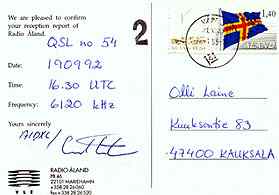 We are pleased to confirm
your reception report of
Radio Åland.
QSL no 54
Date: 190992
Time: 16.30 UTC
Frequency: 6120 kHz
Yours sincerely
RADIO ÅLAND
PB 46
22101 MARIEHAMN
+358 28 26060
+358 28 26520
2
1,40
ÅLAND
Olli Laine
83
47400 KAUKSALA